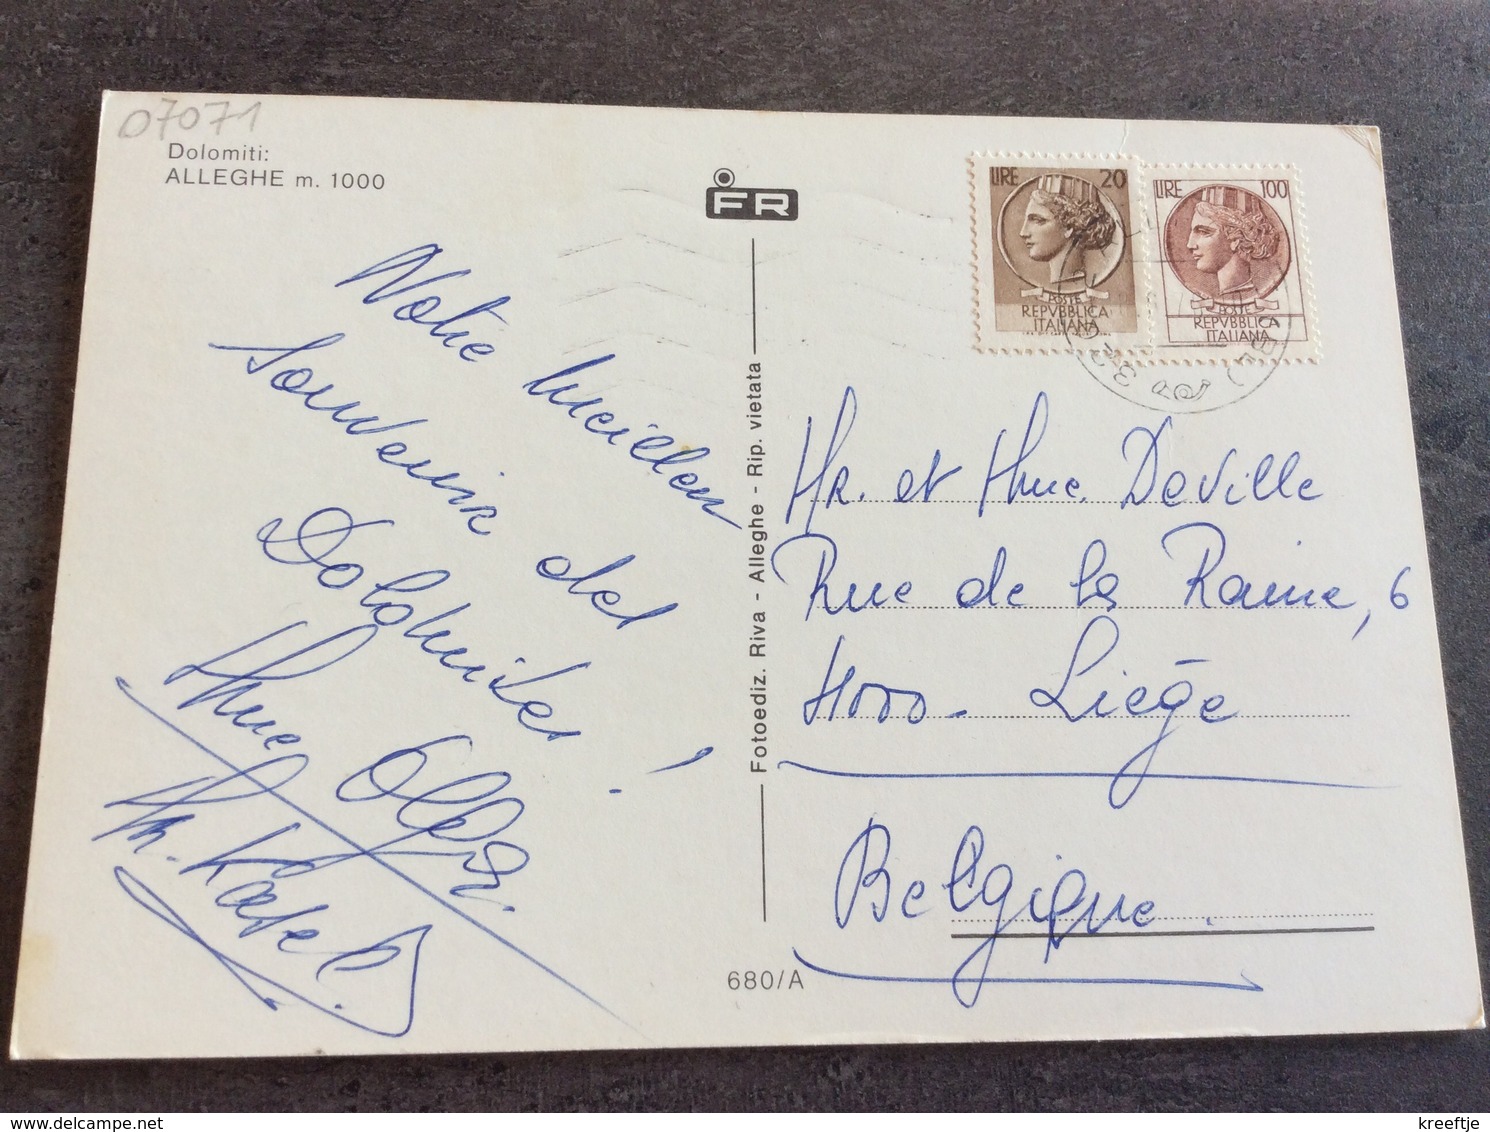 07071
Dolomiti:
ALLEGHE m. 1000
FR
LIRE 20
POSTE
REPVBBLICA
ITALIANA
LIRE 100
POSTE
REPVBBLICA
ITALIANA
Notre meilleur
Souvenir des
Dolomites !
Mme
M. Karel
Fotoediz. Riva - Alleghe - Rip. vietata
Mr. et Mme. Deville
Rue de la Raine, 6
4000 - Liège
Belgique.
680/A
kreeftje